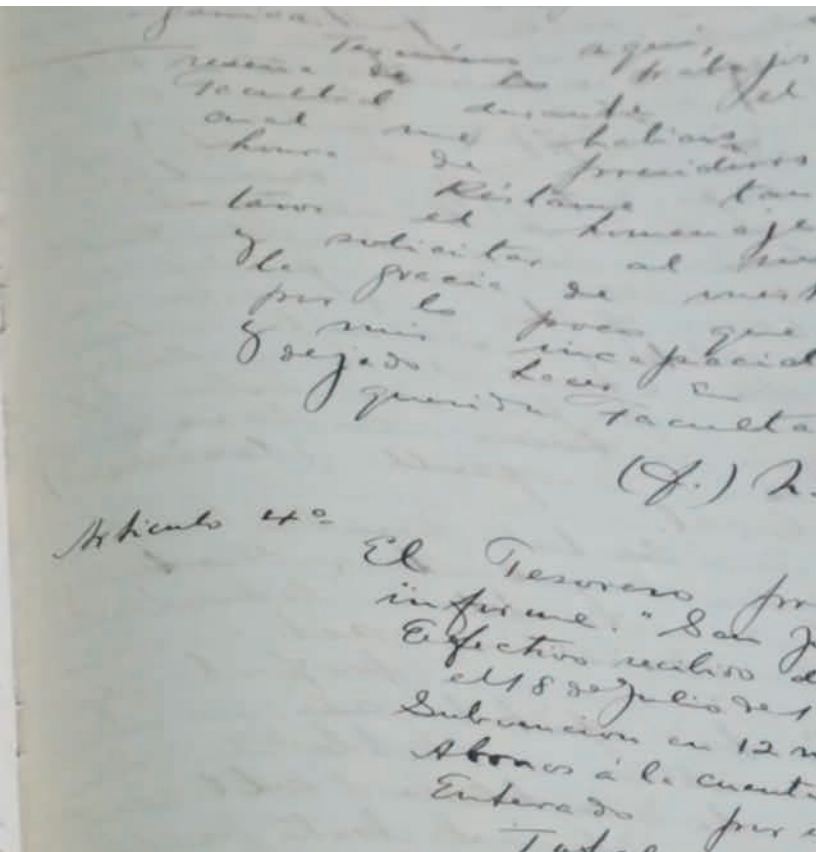 Terminan aquí, 
reseña de los trabajos
Facultad durante el
cual me habíais
honra de presidiros
Réstame tan
taros el homenaje
y solicitar al
la gracia de
por lo poco que
y mis incapacid
dejado hacer en
querida Faculta
(f.)
Artículo 4º
El Tesorero
informe. "San J
Efectivo recibido d
el 18 de Julio de 1
Subvencion en 12 m
Abonos á la cuenta
Enterado por
Total